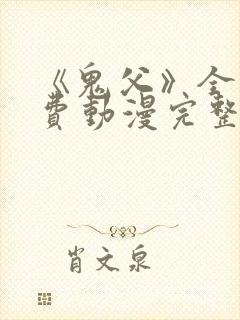 《鬼父》全
费动漫完整
肖文泉